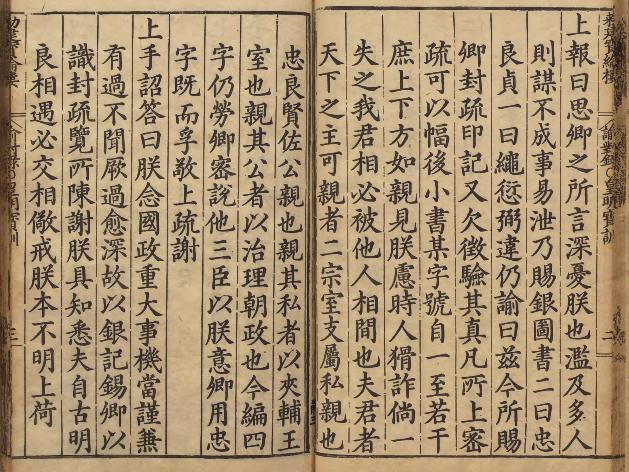 諭對錄○皇明寶訓
二
上報曰思卿之所言深憂朕也濫及多人
則謀不成事易泄乃賜銀圖書二曰忠
良貞一曰繩愆弼違仍諭曰茲今所賜
卿封疏印記又欠徵驗其真凡所上密
疏可以幅後小書某字號自一至若干
庶上下方如親見朕慮時人猾詐倘一
失之我君相必被他人相間也夫君者
天下之主可親者二宗室支屬私親也
忠良賢佐公親也親其私者以夾輔王
室也親其公者以治理朝政也今編四
字仍勞卿密說他三臣以朕意卿用忠
字既而孚敬上疏謝
上手詔答曰朕念國政重大事機當謹兼
有過不聞厥過愈深故以銀記錫卿以
識封疏覽所陳謝朕具知悉夫自古明
良相遇必交相儆戒朕本不明上荷